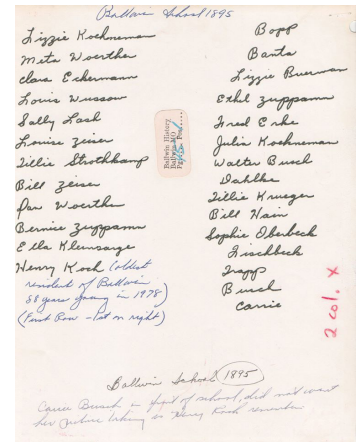 Ballwin School 1895
Lizzie Kochneman
Meta Woerther
Clara Eckermann
Louis Wussow
Sally Lash
Louise Zeiser
Tillie Strothkamp
Bill Zeiser
Dan Woerther
Bernice Zuppann
Ella Kleinsarge
Henry Koch (oldest
resident of Ballwin
88 years young in 1978)
(First Row - 1st on right)
Bopp
Banta
Lizzie Buerman
Ethel Zuppann
Fred Erke
Julia Kochneman
Walter Busch
Dahlke
Tillie Krueger
Bill Hain
Sophie Oberbeck
Fischbeck
Trapp
Busch
Carrie
Ballwin History
Ballwin, MO
2 col. x
Ballwin School 1895
Carrie Busch in front of school, did not want
her picture taken so Henry Koch remembers